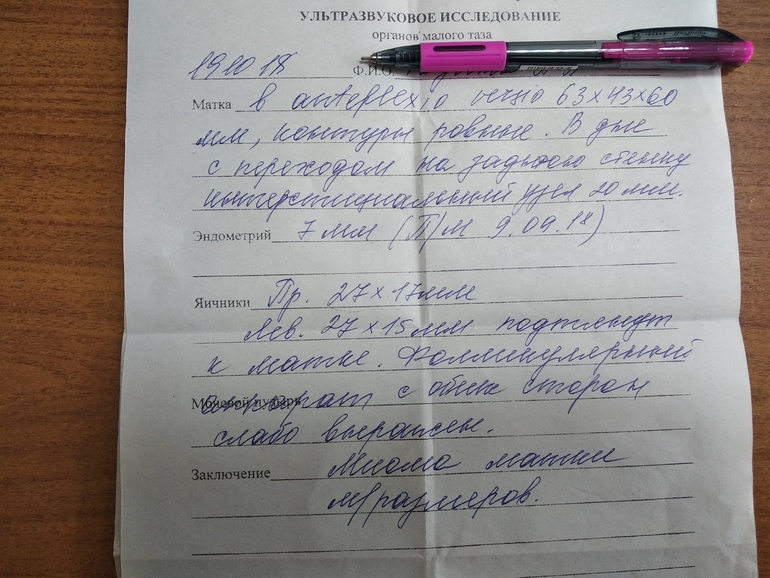 УЛЬТРАЗВУКОВОЕ ИССЛЕДОВАНИЕ
органов малого таза
19 10 18 Ф.И.О.
Матка в anteflexio verzio 63х43х60
мм, контуры ровные. В дне
с переходом на заднюю стенку
интерстициальный узел 20 мм.
Эндометрий 7 мм (П/М 9.09.18)
Яичники Пр. 27х17мм
Лев. 27х15мм подтянут
к матке. Фолликулярный
Мочевой пузырь аппарат с обеих сторон
слабо выражен.
Заключение Миома матки
м/размеров.